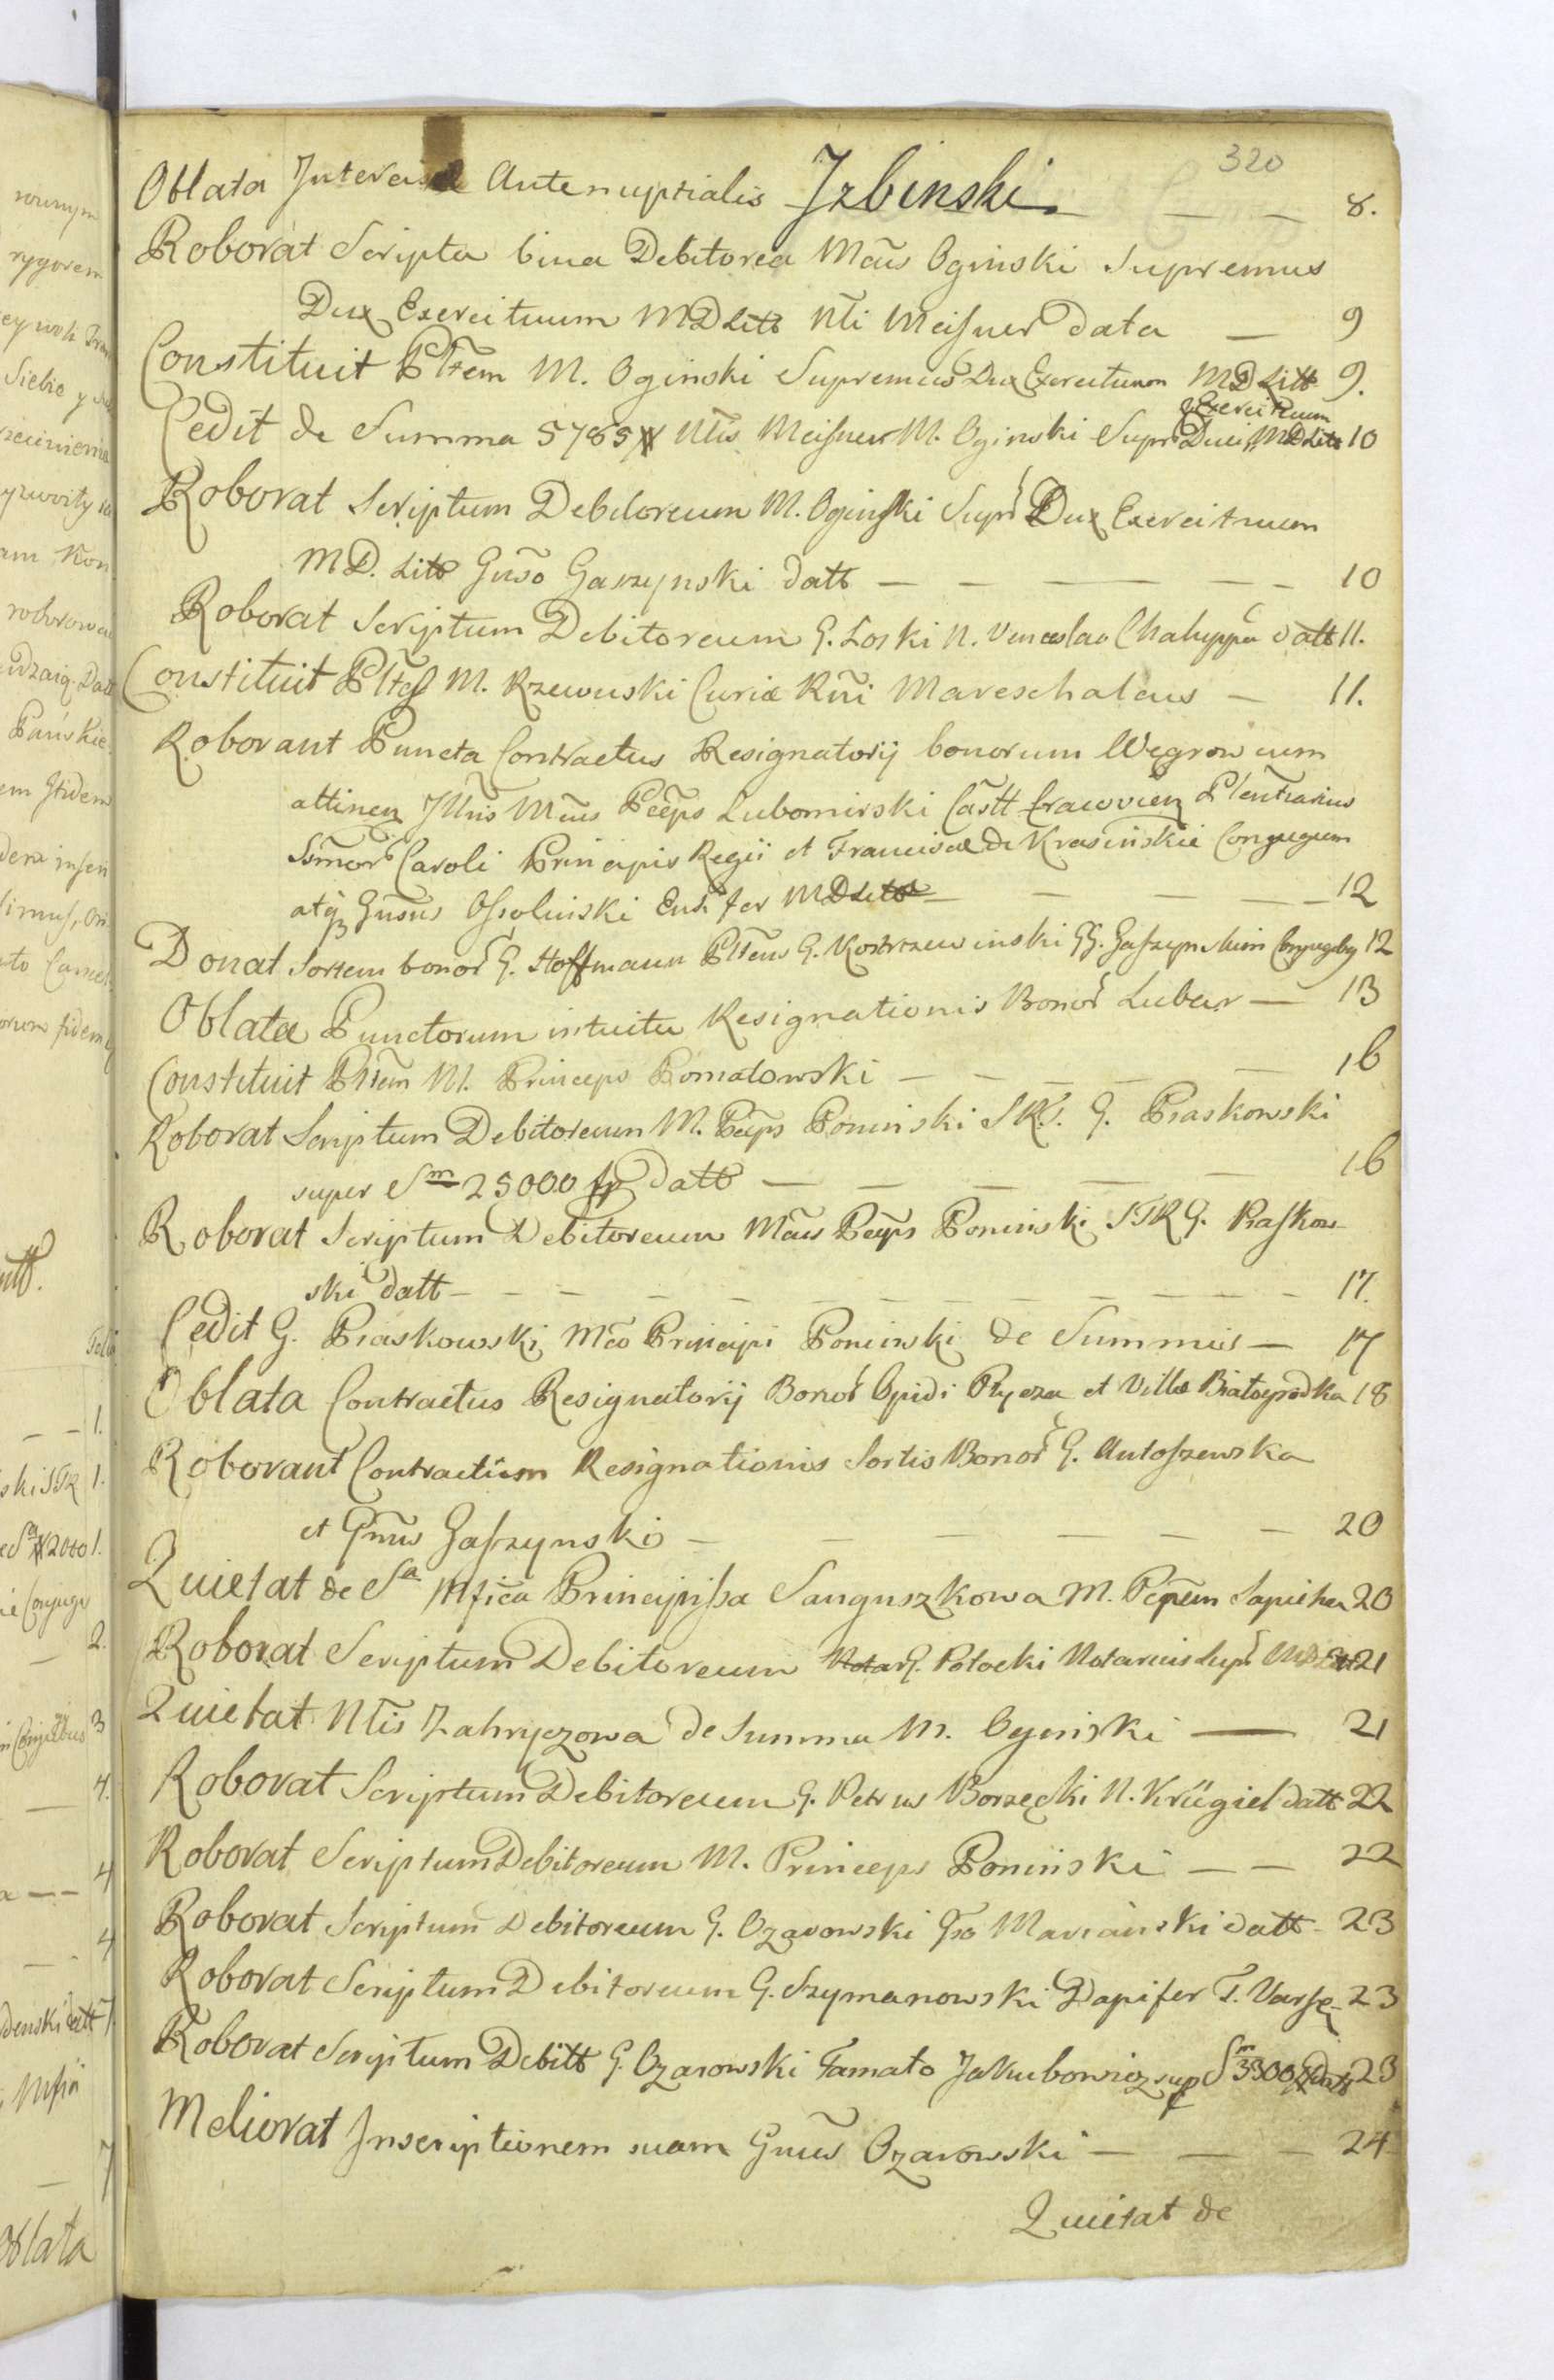 320
Oblata Intercisæ Antenuptialis Izbinski — — 8.
Roborat Scripta bina Debitorea Mcus Oginski Supremus
Dux Exercituum MD Litt Nli Meisner data — 9
Constituit Plrem M. Oginski Supremus Dux Exercituum MD Litt 9.
Exercituum
Cedit de Summa 5785 # Nlis Meisner M. Oginski Supr Duci MD Litt 10
Roborat Scriptum Debitoreum M. Oginski Supr Dux Exercituum
MD. Litt Gnso Gaszynski datt — — — — — — 10
Roborat Scriptum Debitoreum G. Loski N. Venceslao Chaluppa datt 11.
Constituit Pltes M. Rzewuski Curiæ Rni Mareschalcus — 11.
Roborant Puncta Contractus Resignatorij bonorum Węgrow cum
attinen Illris Mcus Pceps Lubomirski Castt Cracovien Plentiarius
Ssmor Caroli Principis Regii et Franciscæ de Krasinskie Conjugum
atq Gnsus Ossolinski Ensifer MD Litt — — — — 12
Donat Sortem bonor G. Hoffmann Pltens G. Kostrzewinski GG. Gaszynskim Conjugibq 12
Oblata Punctorum intuitu Resignationis Bonor Lubar — 13
Constituit Pltem M. Princeps Poniatowski — — — — — 16
Roborat Scriptum Debitoreum M. Pceps Poninski SRJ. G. Piaskowski
super Sm 25000 fp datt — — — — — 16
Roborat Scriptum Debitoreum Mcus Pceps Poninski STR G. Piaskow
ski datt — — — — — — — — — — 17.
Cedit G. Piaskowski Mco Principi Poninski de Summis — 17
Oblata Contractus Resignatorij Bonor Opidi Ptycza et Villæ Białogrodka 18
Roborant Contractum Resignationis Sortis Bonor G. Antoszewska
et Gnsus Gaszynski — — — — — — 20
Quietat de Sa Mfica Principissa Sanguszkowa M. Pcpem Sapieha 20
Roborat Scriptum Debitoreum Notar G. Potocki Notarius Supr MD Litt 21
Quietat Nlis Zahryczowa de Summa M. Oginski — 21
Roborat Scriptum Debitoreum G. Petrus Borzęcki N. Krügiel datt 22
Roborat Scriptum Debitoreum M. Princeps Poninski — — 22
Roborat Scriptum Debitoreum G. Ozarowski Gso Marianski datt - 23
Roborat Scriptum Debitoreum G. Szymanowski Dapifer T. Varse - 23
Roborat Scriptum Debitt G. Ozarowski Famato Jakubowicz sup Sm 3300 # datt 23
Meliorat Inscriptionem suam Gnsus Ozarowski — — — 24
Quietat de